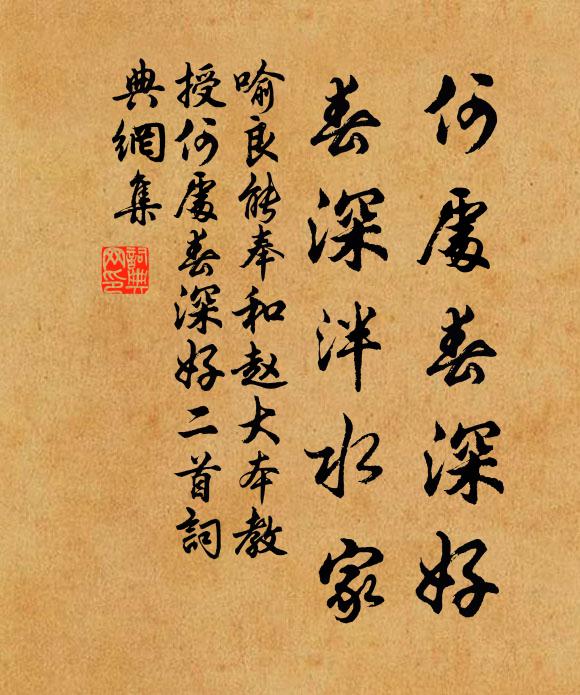 何處春深好
春深泮水家
喻良能奉和赵大本教
授何處春深好二首詞
典網集
詞典
网印